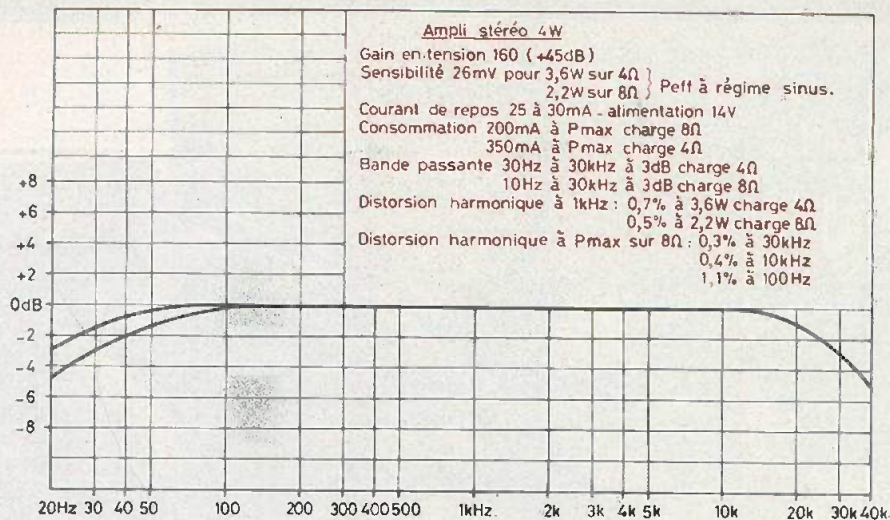 Ampli stéréo 4W
Gain en tension 160 (+45dB)
Sensibilité 26mV pour 3,6W sur 4Ω
2,2W sur 8Ω } Peff à régime sinus.
Courant de repos 25 à 30mA - alimentation 14V
Consommation 200mA à Pmax charge 8Ω
350mA à Pmax charge 4Ω
Bande passante 30Hz à 30kHz à 3dB charge 4Ω
10Hz à 30kHz à 3dB charge 8Ω
Distorsion harmonique à 1kHz : 0,7% à 3,6W charge 4Ω
0,5% à 2,2W charge 8Ω
Distorsion harmonique à Pmax sur 8Ω : 0,3% à 30kHz
0,4% à 10kHz
1,1% à 100Hz
+8
+6
+4
+2
0dB
-2
-4
-6
-8
20Hz 30 40 50 100 200 300 400 500 1kHz 2k 3k 4k 5k 10k 20k 30k 40k